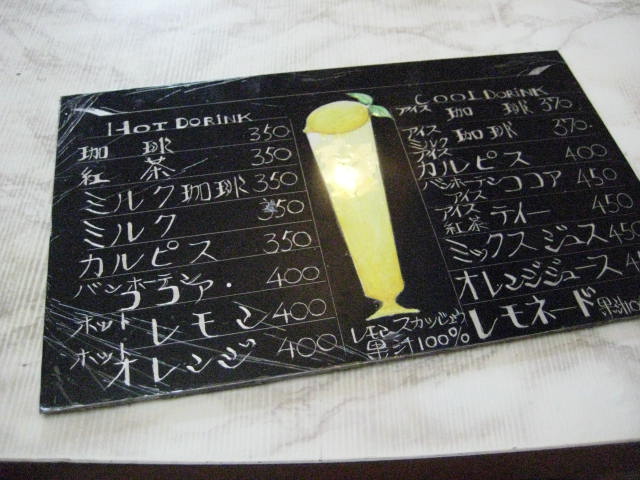 HOT DORINK
珈琲 350
紅茶 350
ミルク珈琲 350
ミルク 350
カルピス 350
バンホーテン
ココア・ 400
ホット レモン 400
ホット オレンジ 400
レモンスカッシュ
果汁100%
COOL DORINK
アイス 珈琲 370
アイス
ミルク 珈琲 370.
アイス
カルピス 400
バンホーテン ココア 450
アイス
アイス
紅茶 ティー 450
ミックスジュス 450
オレンジジュース
レモネード 果汁